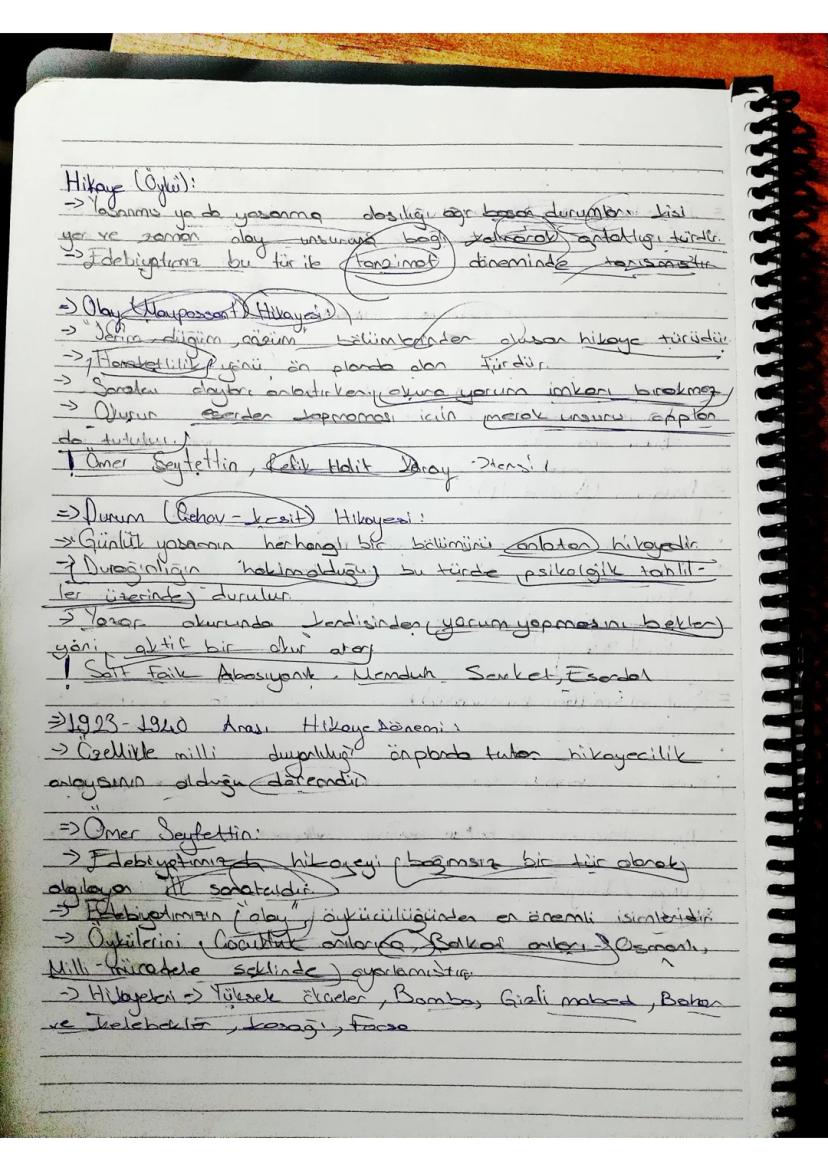 Hikaye (Öykü):
→ Yaşanmış ya da yaşanma olasılığı durumları kişi
yer ve zaman olay unsuruna bağlı kalarak anlattığı türdür.
→ Edebiyatımız bu tür ile tanzimat döneminde tanışmıştır
⇒ Olay (Maupassant) Hikayesi:
→ Serim - düğüm, çözüm bölümlerinden oluşan hikaye türüdür.
→ Hareketlilik yönü ön planda olan türdür.
→ Sanatçı olayları anlatırken okura yorum imkanı bırakmaz
→ Okurun eserden kopmaması için merak unsuru ön plan
da tutulur.
! Ömer Seyfettin, Refik Halit Karay
⇒ Durum (Çehov - kesit) Hikayesi:
→ Günlük yaşamın herhangi bir bölümünü anlatan hikayedir.
→ Durağınlığın hakim olduğu bu türde psikolojik tahlil-
ler üzerinde durulur.
→ Yazar okurunda kendisinden yorum yapmasını bekler
yani aktif bir okur arar
! Sait Faik Abasıyanık, Memduh Şevket, Esendal
⇒ 1923-1940 Arası Hikaye Dönemi:
→ Özellikle milli duyarlılığı önplanda tutan hikayecilik
anlayışının olduğu dönemdir.
⇒ Ömer Seyfettin:
→ Edebiyatımızda hikayeyi bağımsız bir tür olarak
algılayan ilk sanatçıdır.
→ Edebiyatımızın "olay" öykücülüğünden en önemli isimleridir
→ Öykülerini Çocukluk anılarına, Balkan anıları, Osmanlı,
Milli mücadele şeklinde ayarlamıştır.
→ Hikayeleri → Yüksek ökçeler, Bomba, Gizli mabed, Bahar
ve kelebekler, kaşağı, Forsa